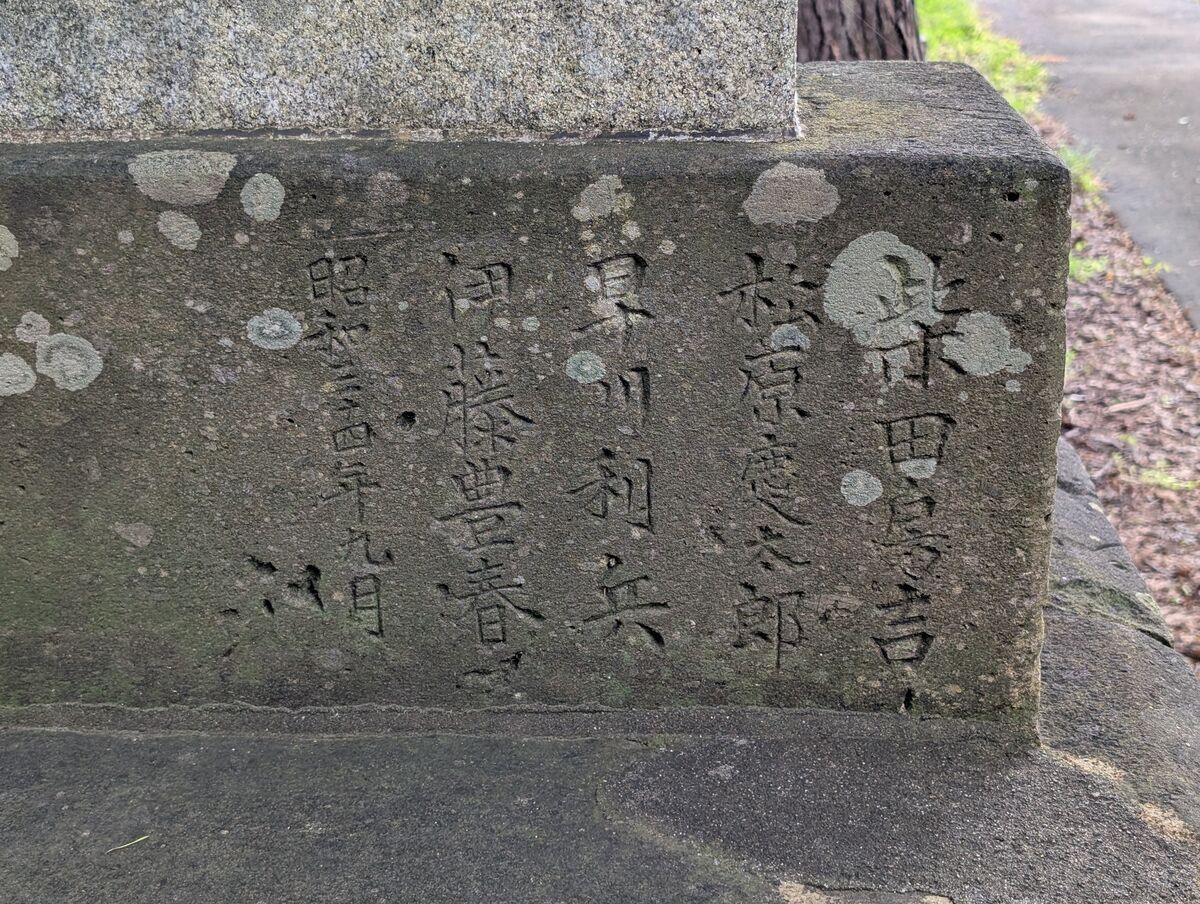 柴田房吉
松原慶太郎
早川利兵
伊藤豊春
昭和三四年九月